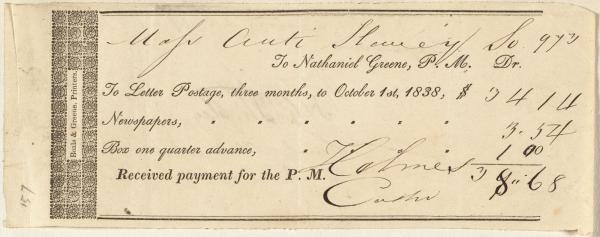 Mass Anti Slavery So. 973
To Nathaniel Greene, P. M. Dr.
To Letter Postage, three months, to October 1st, 1838, $ 34 14
Newspapers, " " " " " 3.54
Box one quarter advance, " 1 00
Received payment for the P. M. Holmes 38.68
Cashr
Beals & Greene, Printers.